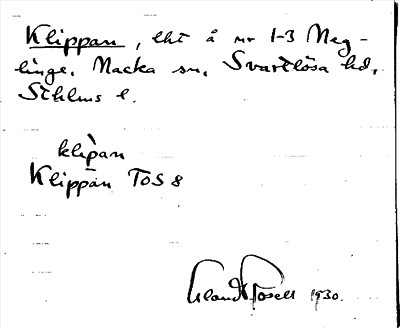 Klippan, lht å nr 1-3 Neg-
linge, Nacka sn, Svartlösa hd,
Sthlms l.
klìpan
Klippan TOS 8
1930.